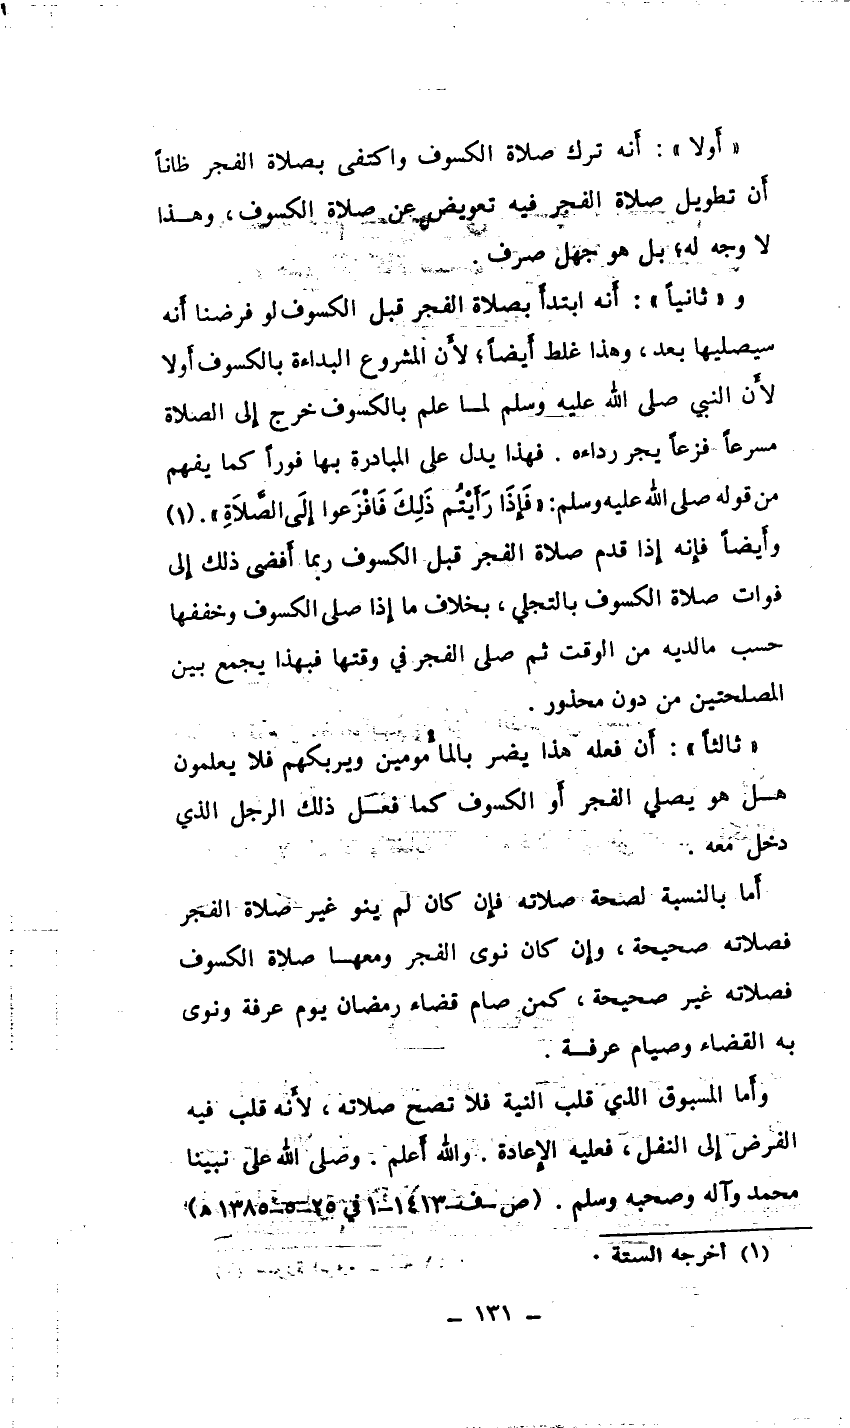 « أولا » : أنه ترك صلاة الكسوف واكتفى بصلاة الفجر ظاناً
أن تطويل صلاة الفجر فيه تعويض عن صلاة الكسوف ، وهـذا
لا وجه له؛ بل هو جهل صرف .
و « ثانياً » : أنه ابتدأ بصلاة الفجر قبل الكسوف لو فرضنا أنه
سيصليها بعد ، وهذا غلط أيضاً ؛ لأن المشروع البداءة بالكسوف أولا
لأن النبي صلى الله عليه وسلم لمـا علم بالكسوف خرج إلى الصلاة
مسرعاً فزعاً يجر رداءه . فهذا يدل على المبادرة بها فوراً كما يفهم
من قوله صلى الله عليه وسلم: « فَإِذَا رَأَيْتُم ذَلِكَ فَافْزَعوا إِلَى الصَّلاَةِ » . (١)
وأيضاً فإنه إذا قدم صلاة الفجر قبل الكسوف ربما أفضى ذلك إلى
فوات صلاة الكسوف بالتجلي ، بخلاف ما إذا صلى الكسوف وخففها
حسب مالديه من الوقت ثم صلى الفجر في وقتها فبهذا يجمع بين
المصلحتين من دون محذور .
« ثالثاً » : أن فعله هذا يضر بالمأمومين ويربكهم فلا يعلمون
هـل هو يصلي الفجر أو الكسوف كما فعـل ذلك الرجل الذي
دخل معه .
أما بالنسبة لصحة صلاته فإن كان لم ينو غير صلاة الفجر
فصلاته صحيحة ، وإن كان نوى الفجر ومعهـا صلاة الكسوف
فصلاته غير صحيحة ، كمن صام قضاء رمضان يوم عرفة ونوى
به القضاء وصيام عرفـة .
وأما المسبوق الذي قلب النية فلا تصح صلاته ، لأنه قلب فيه
الفرض إلى النفل ، فعليه الإعادة . والله أعلم . وصلى الله على نبينا
محمد وآله وصحبه وسلم . (ص ـ ف ـ ١٤١٣ ـ ١ في ٢٥ ـ ٥ ـ ١٣٨٥ هـ)
(١) أخرجه الستة .
ـ ١٣١ ـ